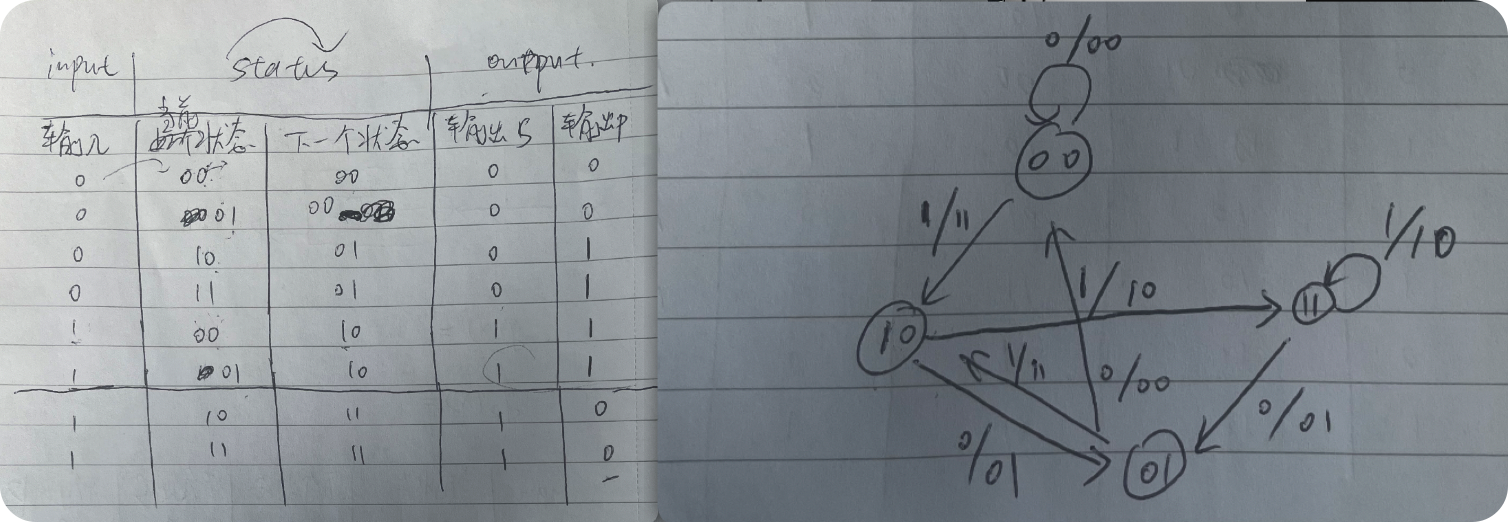 input status output.
输入 状态 下一个状态 输出S 输出P
0 00 00 0 0
0 01 00 0 0
0 10 01 0 1
0 11 01 0 1
1 00 10 1 1
1 01 10 1 1
1 10 11 1 0
1 11 11 1 0
0/00
00
1/11
1/10
1/10
11
10
1/11
0/00
0/01
0/01
01